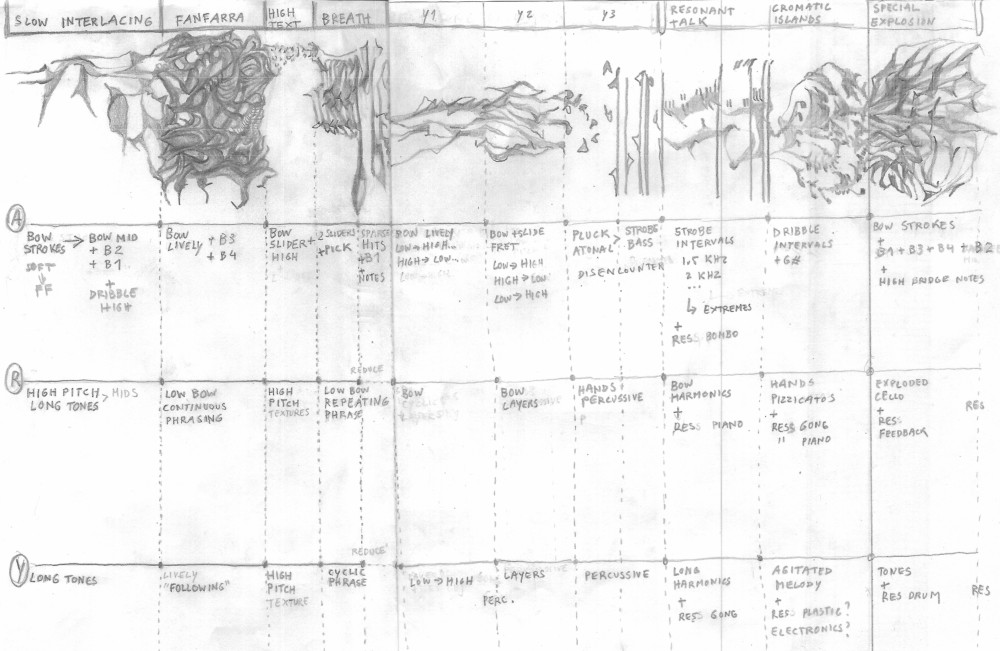 SLOW INTERLACING
FANFARRA
HIGH
TEXT
BREATH
Y1
Y2
Y3
RESONANT
TALK
CROMATIC
ISLANDS
SPECIAL
EXPLOSION
A
BOW
STROKES →
SOFT
↓
FF
BOW MID
+ B2
+ B1
+
DRIBBLE
HIGH
BOW
LIVELY + B3
+ B4
BOW
SLIDER+
HIGH
2 SLIDERS
+PICK
SPARSE
HITS
+B1
+
NOTES
BOW LIVELY
LOW→HIGH...
HIGH→LOW...
BOW+SLIDE
FRET
LOW→HIGH
HIGH→LOW
LOW→HIGH
PLUCK
ATONAL
DISENCOUNTER
STROBE
BASS
STROBE
INTERVALS
1,5 KHZ
2 KHZ
...
↳ EXTREMES
+
RES: BOMBO
DRIBBLE
INTERVALS
+G#
BOW STROKES
+
B1+B3+B4+B2
+
HIGH BRIDGE NOTES
R
HIGH PITCH > MIDS
LONG TONES
LOW BOW
CONTINUOUS
PHRASING
HIGH
PITCH
TEXTURES
REDUCE
LOW BOW
REPEATING
PHRASE
BOW
BOW
LAYERS
HANDS
PERCUSSIVE
BOW
HARMONICS
+
RES: PIANO
HANDS
PIZZICATOS
+
RES: GONG
" PIANO
EXPLODED
CELLO
+
RES:
FEEDBACK
RES
Y
LONG TONES
LIVELY
"FOLLOWING"
HIGH
PITCH
TEXTURE
REDUCE
CYCLIC
PHRASE
LOW→HIGH
LAYERS
PERC.
PERCUSSIVE
LONG
HARMONICS
+
RES: GONG
AGITATED
MELODY
+
RES: PLASTIC?
ELECTRONICS?
TONES
+
RES DRUM
RES